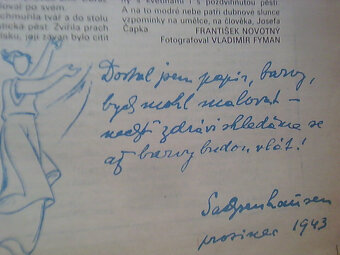 oval po svém.
chmuřila tvář a do stolu
tická pěst. Zvířila prach
ísku, její závan bylo cítit
y s květinami i s pozdvihnutou pěstí.
A na to modré nebe patří dubnové slunce
vzpomínky na umělce, na člověka, Josefa
Čapka
FRANTIŠEK NOVOTNÝ
Fotografoval VLADIMÍR FYMAN
Dostal jsem papír, barvy,
bych mohl malovat –
zdrávi shledáme se
až barvy budou vlát!
Sachsenhausen
prosinec 1943